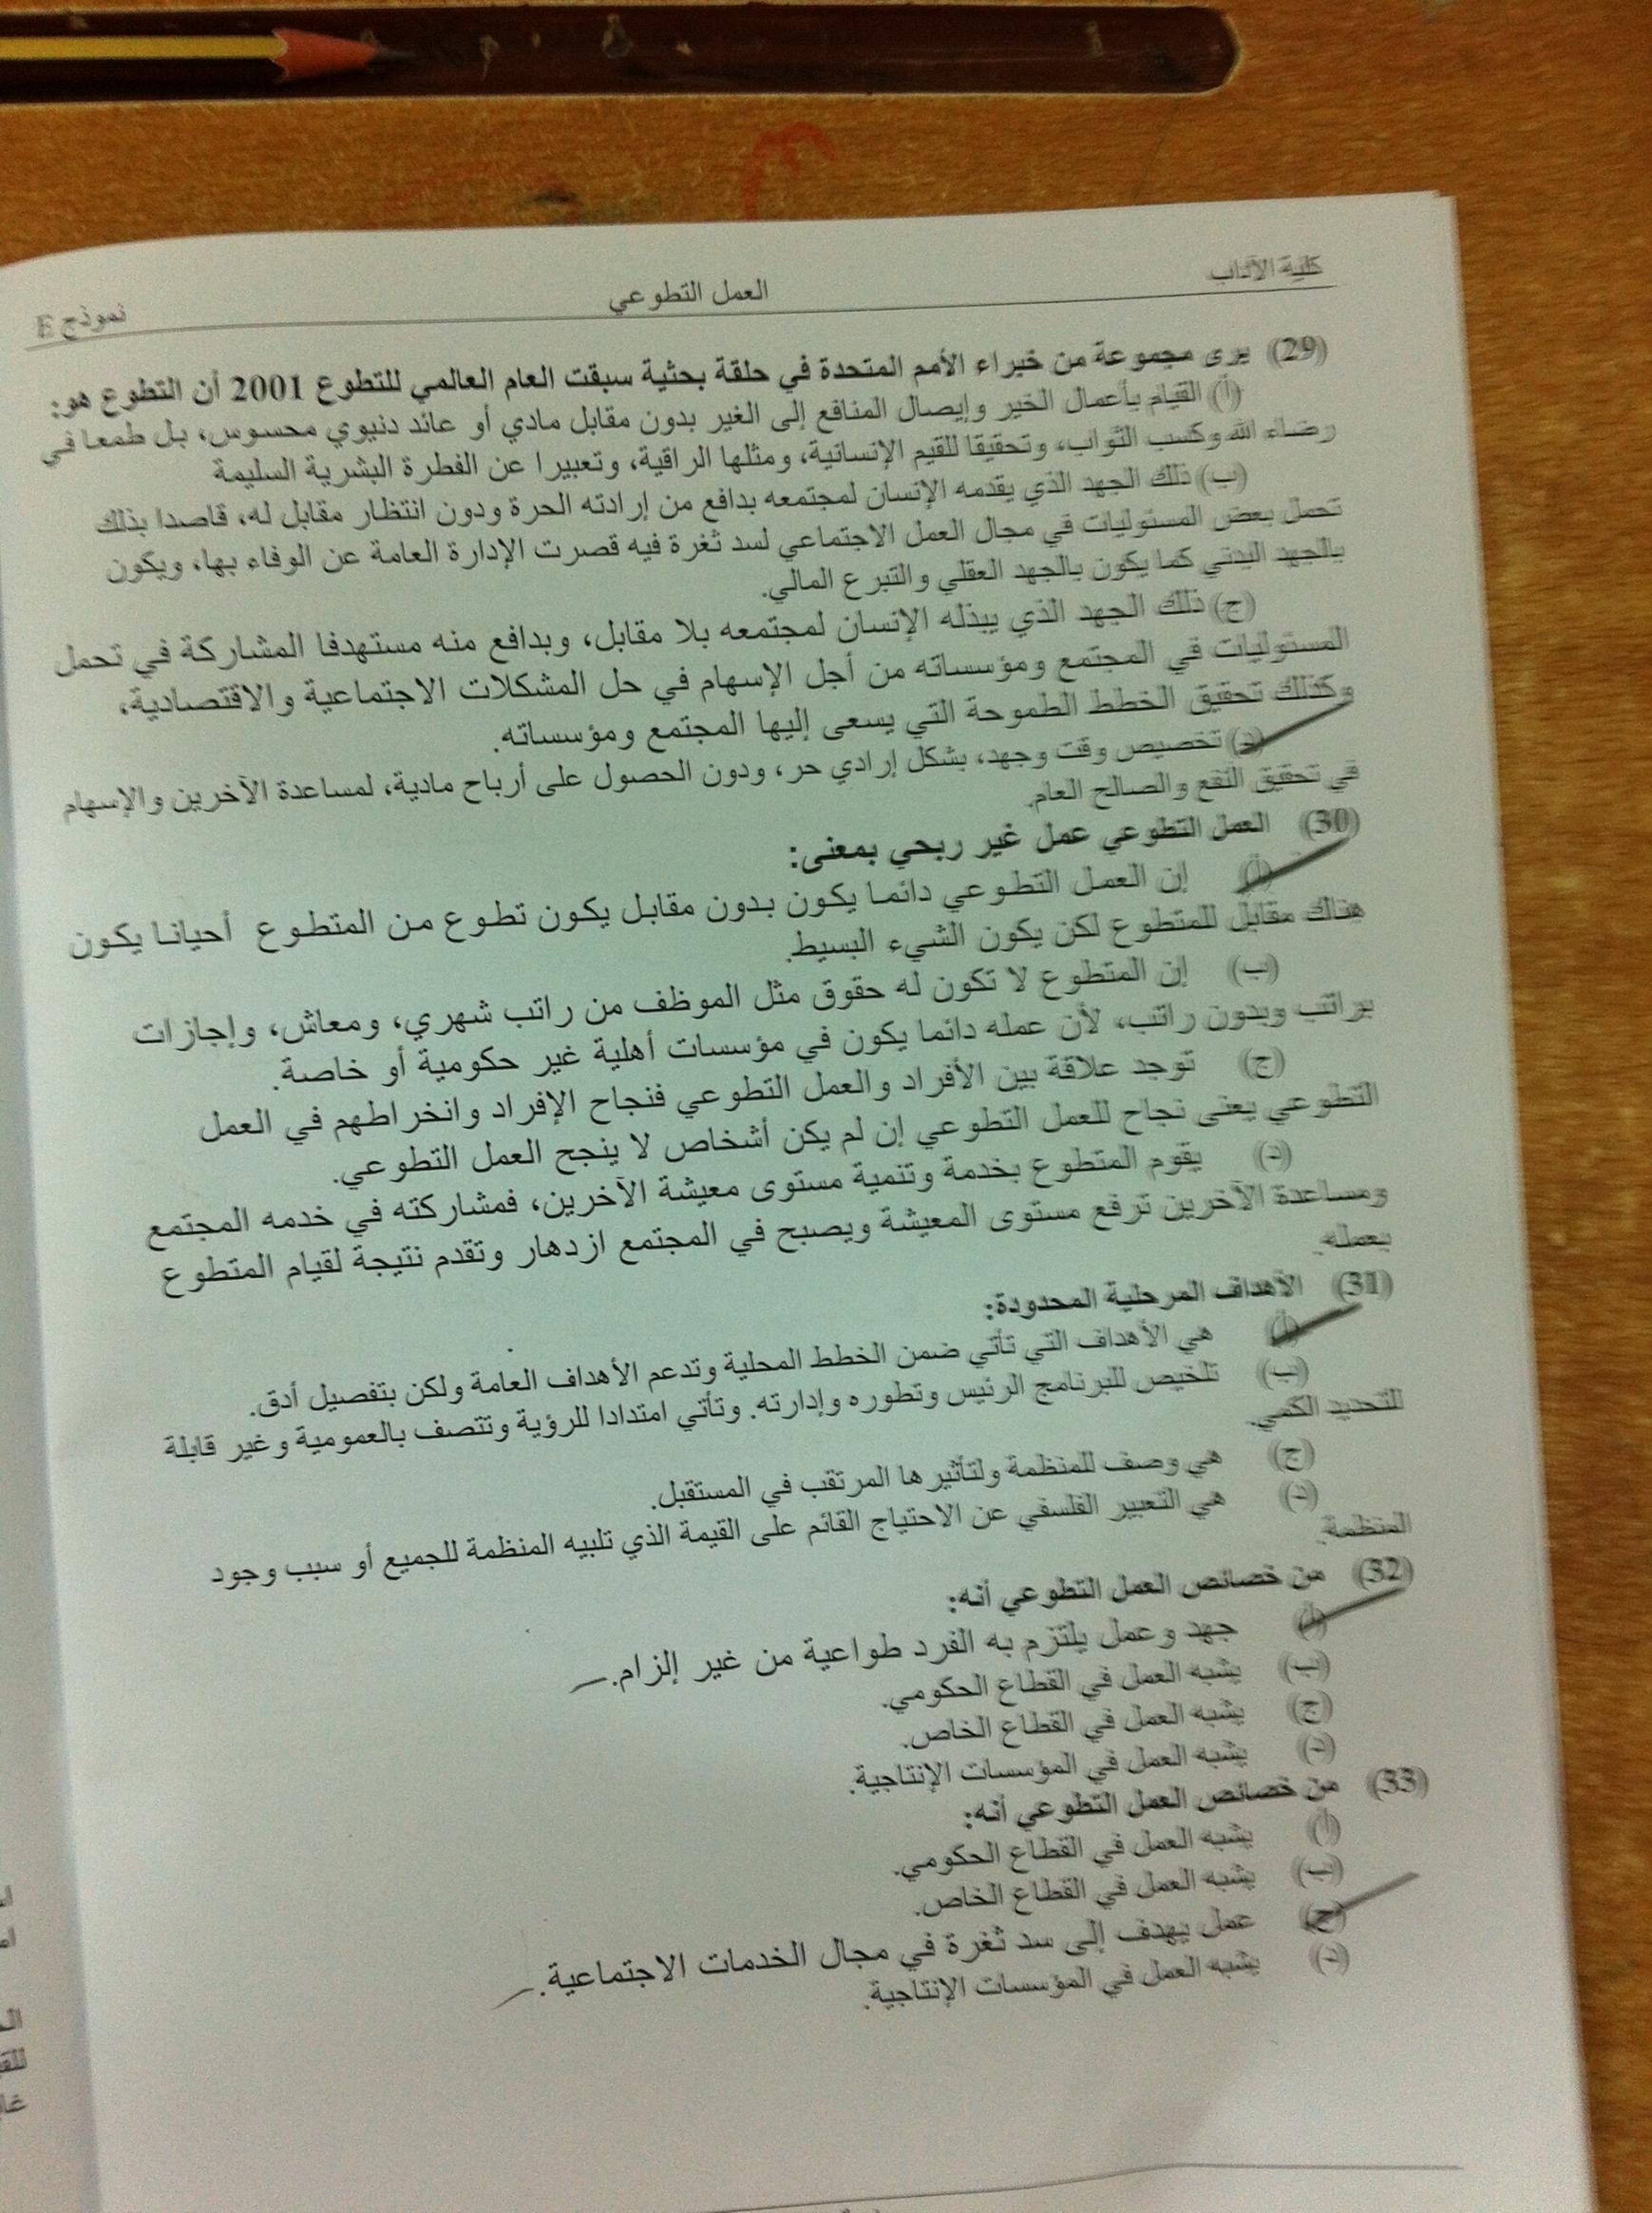 كلية الآداب
العمل التطوعي
نموذج E
(29) يرى مجموعة من خبراء الأمم المتحدة في حلقة بحثية سبقت العام العالمي للتطوع 2001 أن التطوع هو:
(أ) القيام بأعمال الخير وإيصال المنافع إلى الغير بدون مقابل مادي أو عائد دنيوي محسوس، بل طمعا في
رضاء الله وكسب الثواب، وتحقيقا للقيم الإنسانية، ومثلها الراقية، وتعبيرا عن الفطرة البشرية السليمة
(ب) ذلك الجهد الذي يقدمه الإنسان لمجتمعه بدافع من إرادته الحرة ودون انتظار مقابل له، قاصدا بذلك
تحمل بعض المسئوليات في مجال العمل الاجتماعي لسد ثغرة فيه قصرت الإدارة العامة عن الوفاء بها، ويكون
بالجهد البدني كما يكون بالجهد العقلي والتبرع المالي.
(ج) ذلك الجهد الذي يبذله الإنسان لمجتمعه بلا مقابل، وبدافع منه مستهدفا المشاركة في تحمل
المسئوليات في المجتمع ومؤسساته من أجل الإسهام في حل المشكلات الاجتماعية والاقتصادية،
وكذلك تحقيق الخطط الطموحة التي يسعى إليها المجتمع ومؤسساته.
(د) تخصيص وقت وجهد، بشكل إرادي حر، ودون الحصول على أرباح مادية، لمساعدة الآخرين والإسهام
في تحقيق النفع والصالح العام.
(30) العمل التطوعي عمل غير ربحي بمعنى:
(أ) إن العمل التطوعي دائما يكون بدون مقابل يكون تطوع من المتطوع أحيانا يكون
هناك مقابل للمتطوع لكن يكون الشيء البسيط.
(ب) إن المتطوع لا تكون له حقوق مثل الموظف من راتب شهري، ومعاش، وإجازات
براتب وبدون راتب، لأن عمله دائما يكون في مؤسسات أهلية غير حكومية أو خاصة.
(ج) توجد علاقة بين الأفراد والعمل التطوعي فنجاح الإفراد وانخراطهم في العمل
التطوعي يعنى نجاح للعمل التطوعي إن لم يكن أشخاص لا ينجح العمل التطوعي.
(د) يقوم المتطوع بخدمة وتنمية مستوى معيشة الآخرين، فمشاركته في خدمه المجتمع
ومساعدة الآخرين ترفع مستوى المعيشة ويصبح في المجتمع ازدهار وتقدم نتيجة لقيام المتطوع
بعمله.
(31) الأهداف المرحلية المحدودة:
(أ) هي الأهداف التي تأتي ضمن الخطط المحلية وتدعم الأهداف العامة ولكن بتفصيل أدق.
(ب) تلخيص للبرنامج الرئيس وتطوره وإدارته. وتأتي امتدادا للرؤية وتتصف بالعمومية وغير قابلة
للتحديد الكمي.
(ج) هي وصف للمنظمة ولتأثيرها المرتقب في المستقبل.
(د) هي التعبير الفلسفي عن الاحتياج القائم على القيمة الذي تلبيه المنظمة للجميع أو سبب وجود
المنظمة.
(32) من خصائص العمل التطوعي أنه:
(أ) جهد وعمل يلتزم به الفرد طواعية من غير إلزام.
(ب) يشبه العمل في القطاع الحكومي.
(ج) يشبه العمل في القطاع الخاص.
(د) يشبه العمل في المؤسسات الإنتاجية.
(33) من خصائص العمل التطوعي أنه:
(أ) يشبه العمل في القطاع الحكومي.
(ب) يشبه العمل في القطاع الخاص.
(ج) عمل يهدف إلى سد ثغرة في مجال الخدمات الاجتماعية.
(د) يشبه العمل في المؤسسات الإنتاجية.